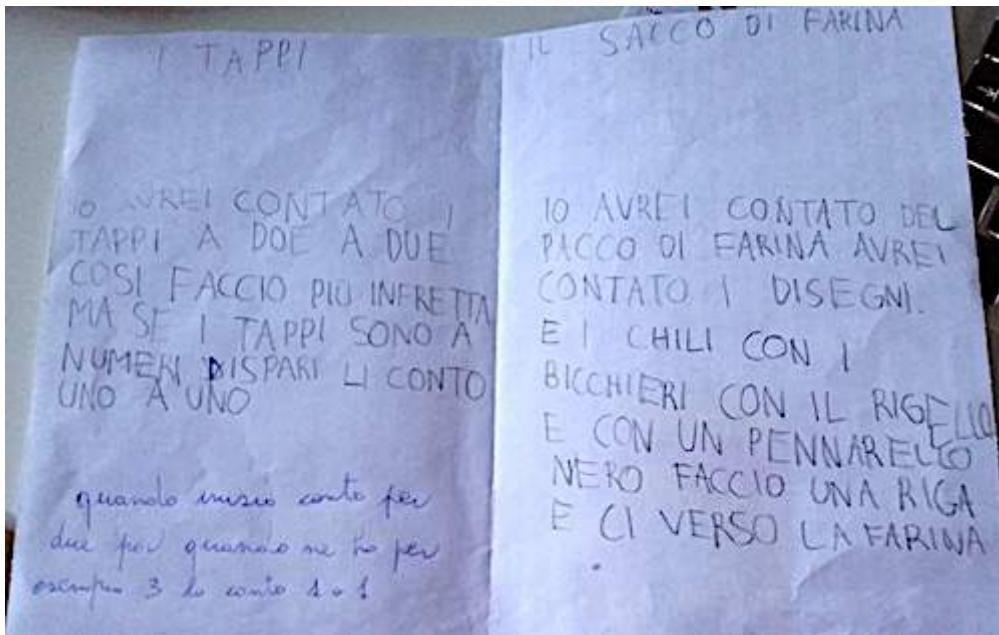 I TAPPI
IO AVREI CONTATO I
TAPPI A DOE A DUE
COSI FACCIO PIÙ INFRETTA
MA SE I TAPPI SONO A
NUMERI DISPARI LI CONTO
UNO A UNO
quando inizio conto per
due poi quando ne ho per
esempio 3 lo conto 1 a 1
IL SACCO DI FARINA
IO AVREI CONTATO DEL
PACCO DI FARINA AVREI
CONTATO I DISEGNI.
E I CHILI CON I
BICCHIERI CON IL RIGELLO
E CON UN PENNARELLO
NERO FACCIO UNA RIGA
E CI VERSO LA FARINA